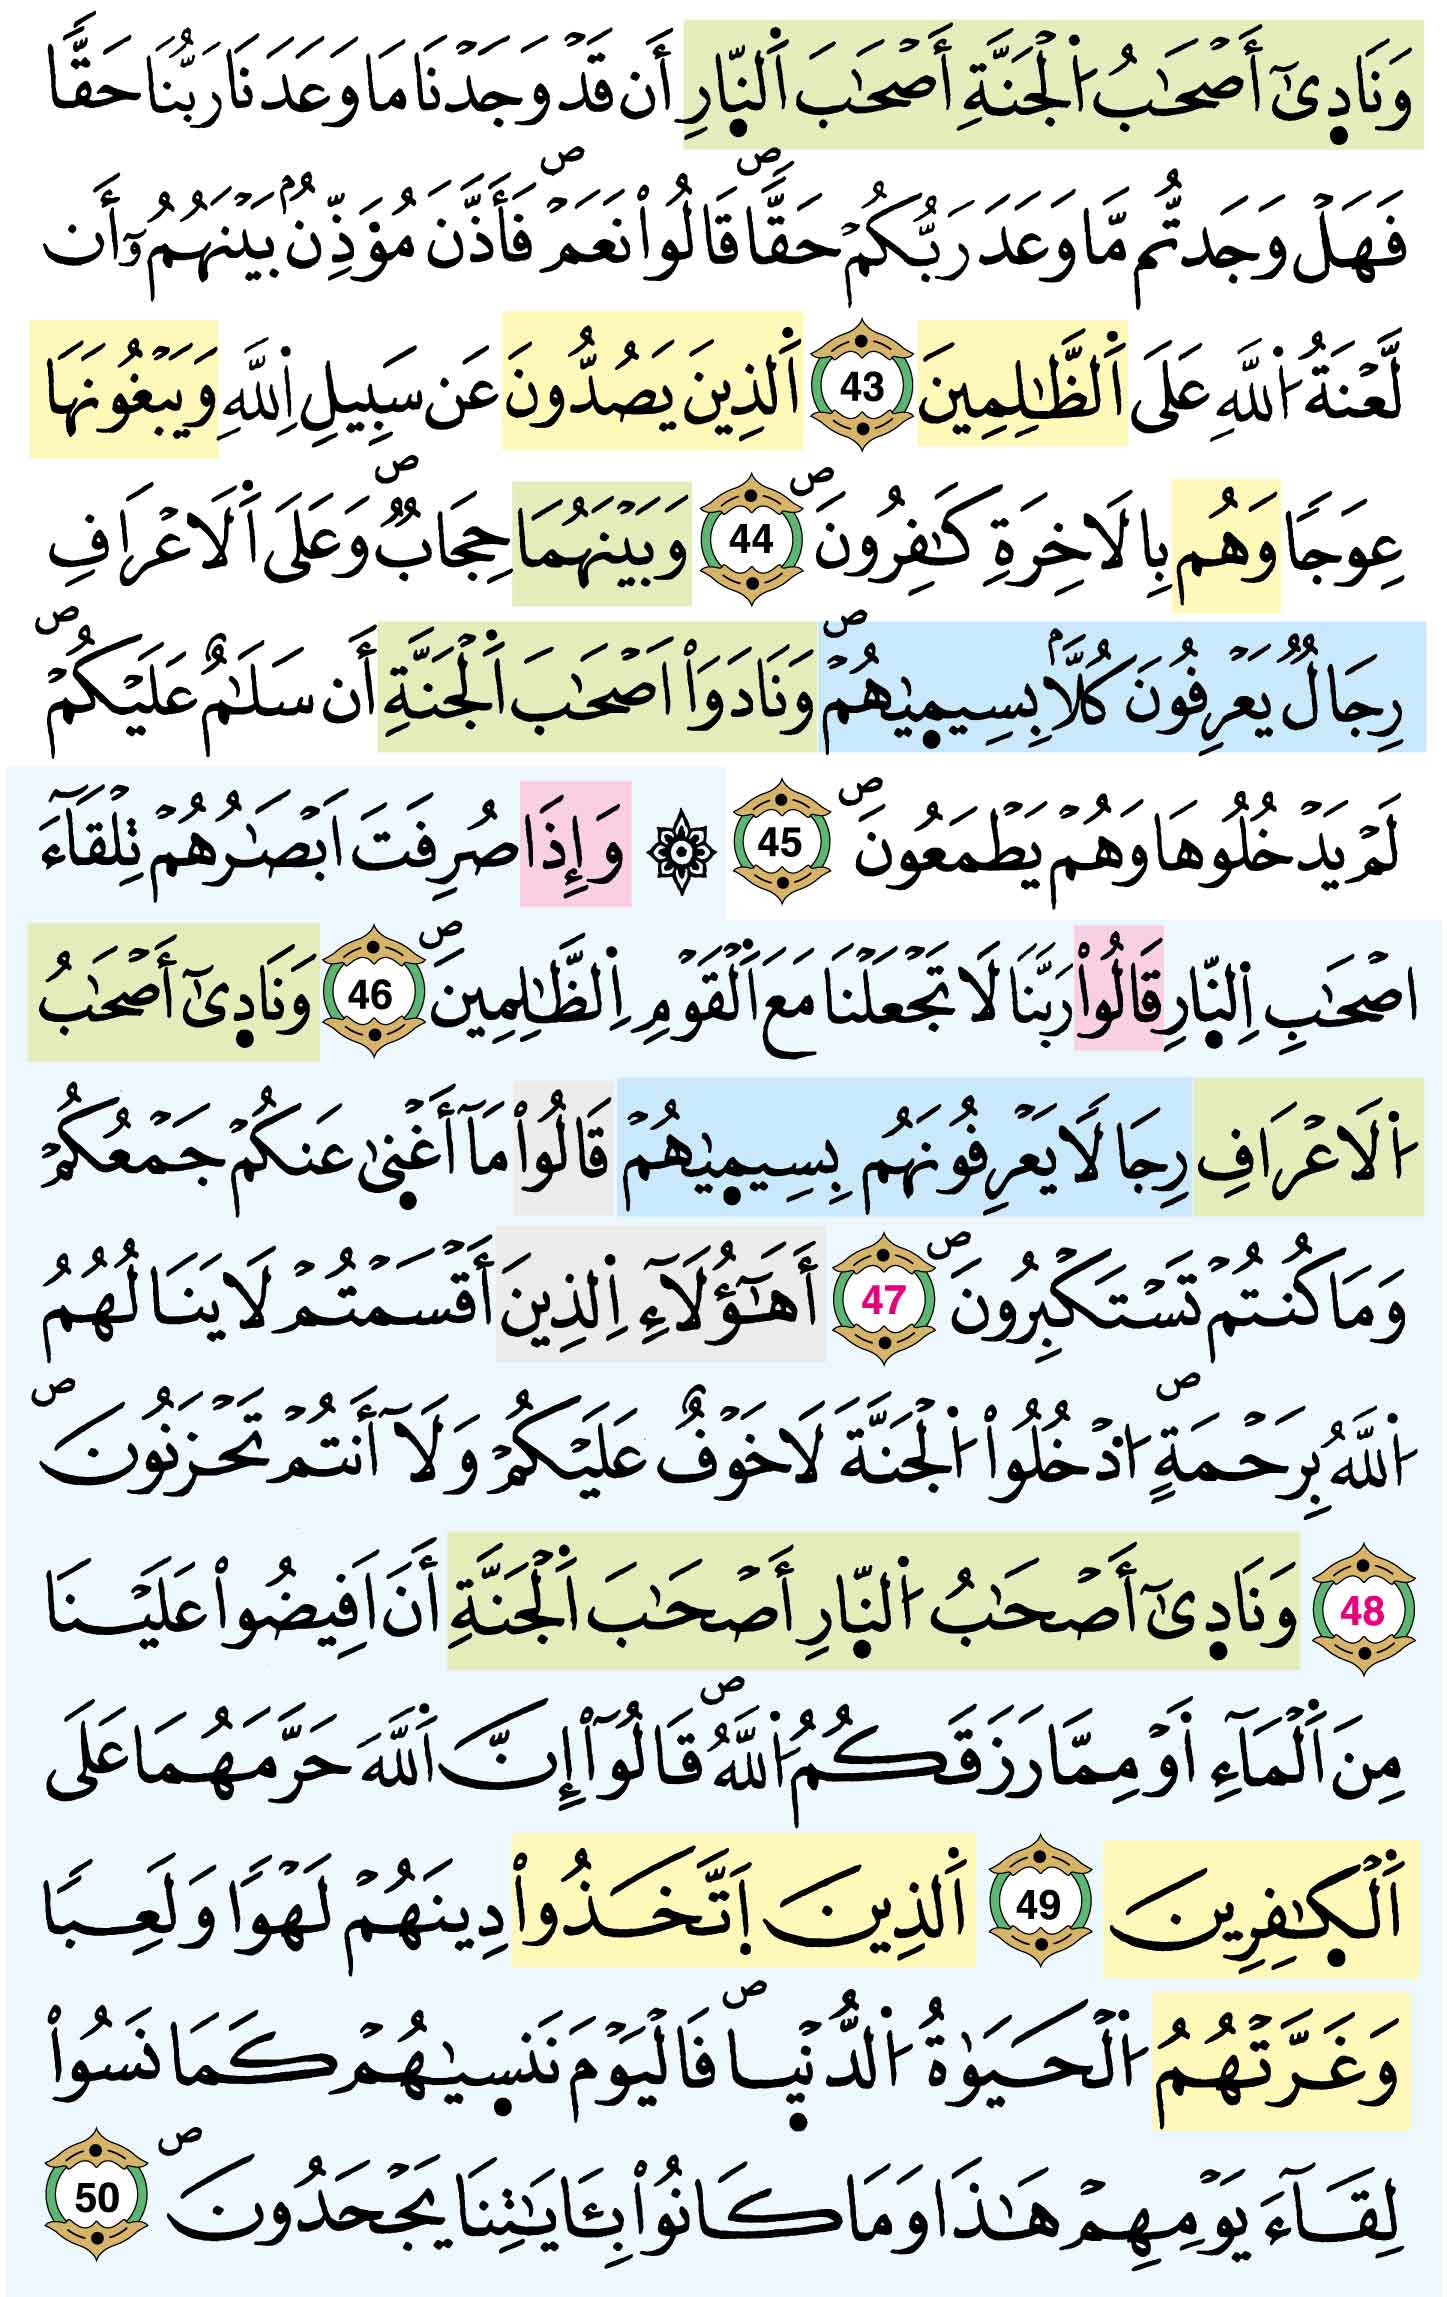 وَنَادِىٰٓ أَصْحَٰبُ اُ۬لْجَنَّةِ أَصْحَٰبَ اَ۬لنّ۪ارِ أَن قَدْ وَجَدْنَا مَا وَعَدَنَا رَبُّنَا حَقّٗا
فَهَلْ وَجَدتُّم مَّا وَعَدَ رَبُّكُمْ حَقّٗاۖ قَالُواْ نَعَمْۖ فَأَذَّنَ مُؤَذِّنُۢ بَيْنَهُمُۥٓ أَن
لَّعْنَةُ اُ۬للَّهِ عَلَى اَ۬لظَّٰلِمِينَ 43 اَ۬لذِينَ يَصُدُّونَ عَن سَبِيلِ اِ۬للَّهِ وَيَبْغُونَهَا
عِوَجٗا وَهُم بِالَاخِرَةِ كَٰفِرُونَۖ 44 وَبَيْنَهُمَا حِجَابٞۖ وَعَلَى اَ۬لَاعْرَافِ
رِجَالٞ يَعْرِفُونَ كُلَّاۢ بِسِيم۪يٰهُمْۖ وَنَادَوَاْ اَصْحَٰبَ اَ۬لْجَنَّةِ أَن سَلَٰمٌ عَلَيْكُمْۖ
لَمْ يَدْخُلُوهَا وَهُمْ يَطْمَعُونَۖ 45 ۞ وَإِذَا صُرِفَتَ اَبْصَٰرُهُمْ تِلْقَآءَ
اصْحَٰبِ اِ۬لنّ۪ارِ قَالُواْ رَبَّنَا لَا تَجْعَلْنَا مَعَ اَ۬لْقَوْمِ اِ۬لظَّٰلِمِينَۖ 46 وَنَادِىٰٓ أَصْحَٰبُ
اُ۬لَاعْرَافِ رِجَالٗا يَعْرِفُونَهُم بِسِيم۪يٰهُمْ قَالُواْ مَآ أَغْن۪ىٰ عَنكُمْ جَمْعُكُمْ
وَمَا كُنتُمْ تَسْتَكْبِرُونَۖ 47 أَهَٰٓؤُلَآءِ اِ۬لذِينَ أَقْسَمْتُمْ لَا يَنَالُهُمُ
اُ۬للَّهُ بِرَحْمَةٍۖ اُ۟دْخُلُواْ اُ۬لْجَنَّةَ لَا خَوْفٌ عَلَيْكُمْ وَلَآ أَنتُمْ تَحْزَنُونَۖ
48 وَنَادِىٰٓ أَصْحَٰبُ اُ۬لنّ۪ارِ أَصْحَٰبَ اَ۬لْجَنَّةِ أَنَ اَفِيضُواْ عَلَيْنَا
مِنَ اَ۬لْمَآءِ اَوْ مِمَّا رَزَقَكُمُ اُ۬للَّهُۖ قَالُوٓاْ إِنَّ اَ۬للَّهَ حَرَّمَهُمَا عَلَى
اَ۬لْكٰ۪فِرِينَ 49 اَ۬لذِينَ اَتَّخَذُواْ دِينَهُمْ لَهْوٗا وَلَعِبٗا
وَغَرَّتْهُمُ اُ۬لْحَيَوٰةُ اُ۬لدُّنْي۪اۖ فَالْيَوْمَ نَنس۪يٰهُمْ كَمَا نَسُواْ
لِقَآءَ يَوْمِهِمْ هَٰذَا وَمَا كَانُواْ بِـَٔايَٰتِنَا يَجْحَدُونَۖ 50